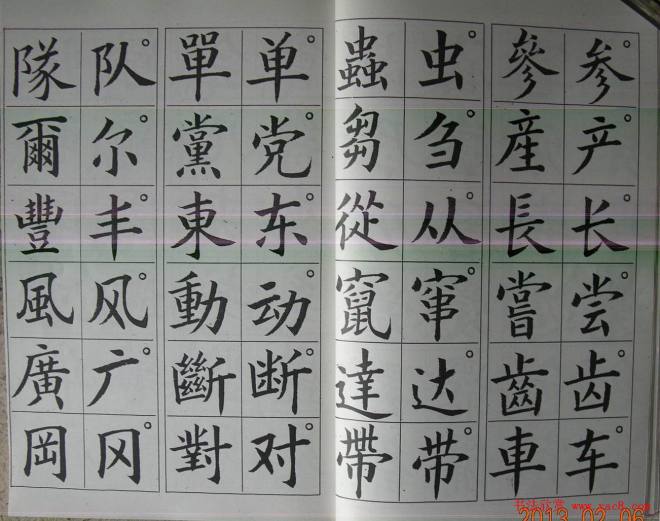 参产长尝齿车
參産長嘗齒車
虫刍从窜达带
蟲芻從竄達帶
单党东动断对
單黨東動斷對
队尔丰风广冈
隊爾豐風廣岡
书法欣赏 www.yac8.com
2013 02 06